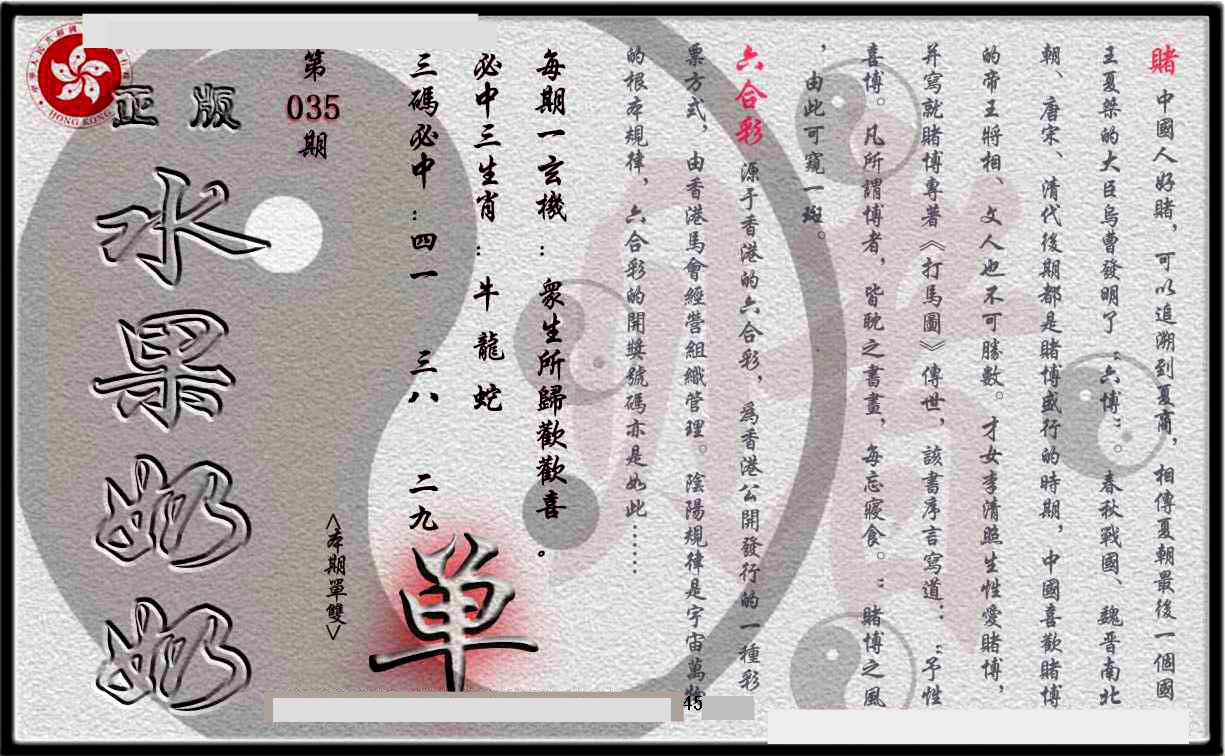 賭 中國人好賭，可以追溯到夏商，相傳夏朝最後一個國
王夏桀的大臣烏曹發明了“六博”。春秋戰國、魏晉南北
朝、唐宋、清代後期都是賭博盛行的時期，中國喜歡賭博
的帝王將相、文人也不可勝數。才女李清照生性愛賭博，
并寫就賭博專著《打馬圖》傳世，該書序言寫道：“予性
喜博。凡所謂博者，皆耽之書畫，每忘寢食。”賭博之風
，由此可窺一斑。
六合彩 源于香港的六合彩，爲香港公開發行的一種彩
票方式，由香港馬會經營組織管理。陰陽規律是宇宙萬物
的根本規律，六合彩的開獎號碼亦是如此……
每期一玄機：衆生所歸歡歡喜。
必中三生肖：牛 龍 蛇
三碼必中：四一 三八 二九
<本期單雙>
单
第
035
期
正版
水果奶奶
HONG KONG
45